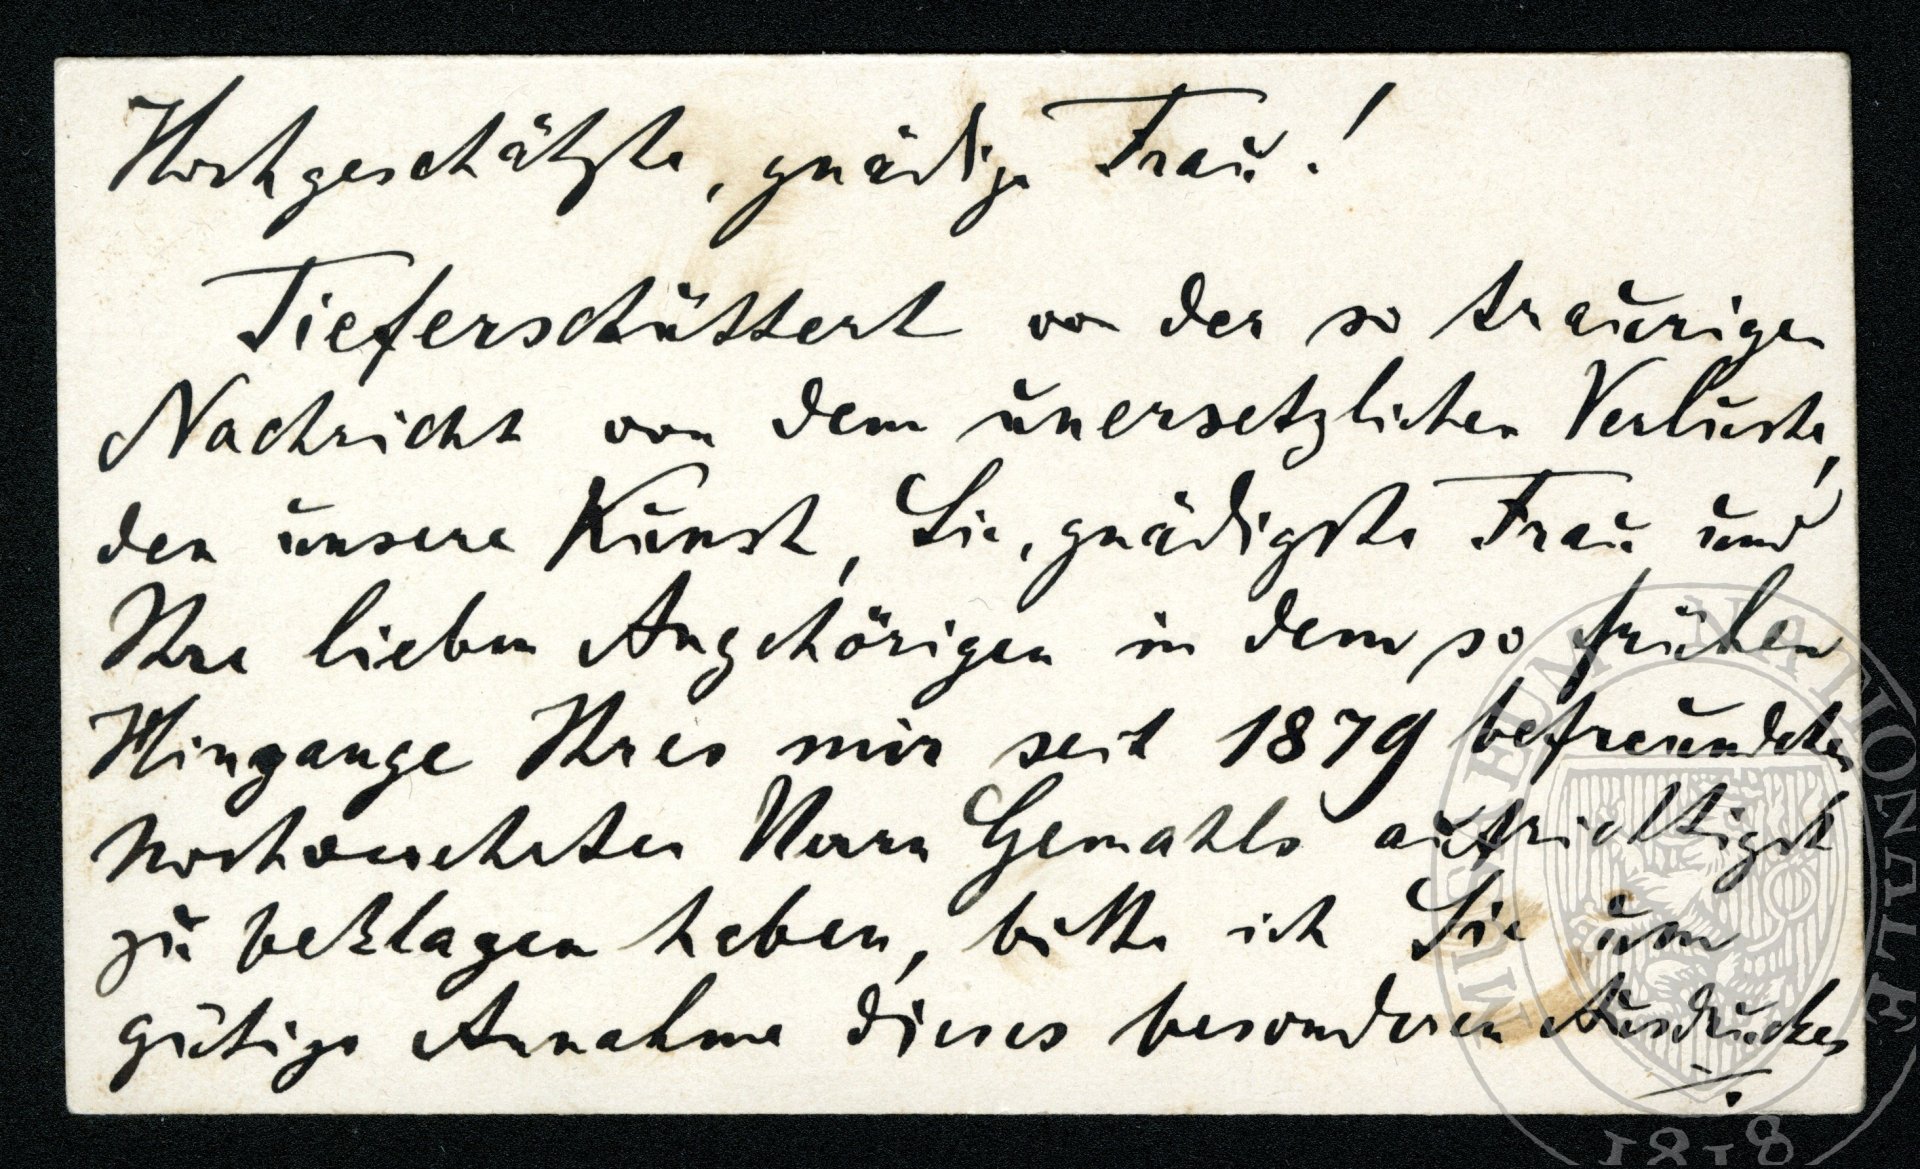 Hochgeschätzte, gnädige Frau!
Tieferschüttert von der so traurigen
Nachricht von dem unersetzlichen Verluste,
den unsere Kunst, Sie, gnädigste Frau und
Ihre lieben Angehörigen in dem so frühen
Hingange Ihres mir seit 1879 befreundeten
hochverehrten Herrn Gemahls aufrichtigst
zu beklagen haben, bitte ich Sie um
gütige Annahme dieses besonderen Ausdruckes
MUSEUM NATIONALE
1818